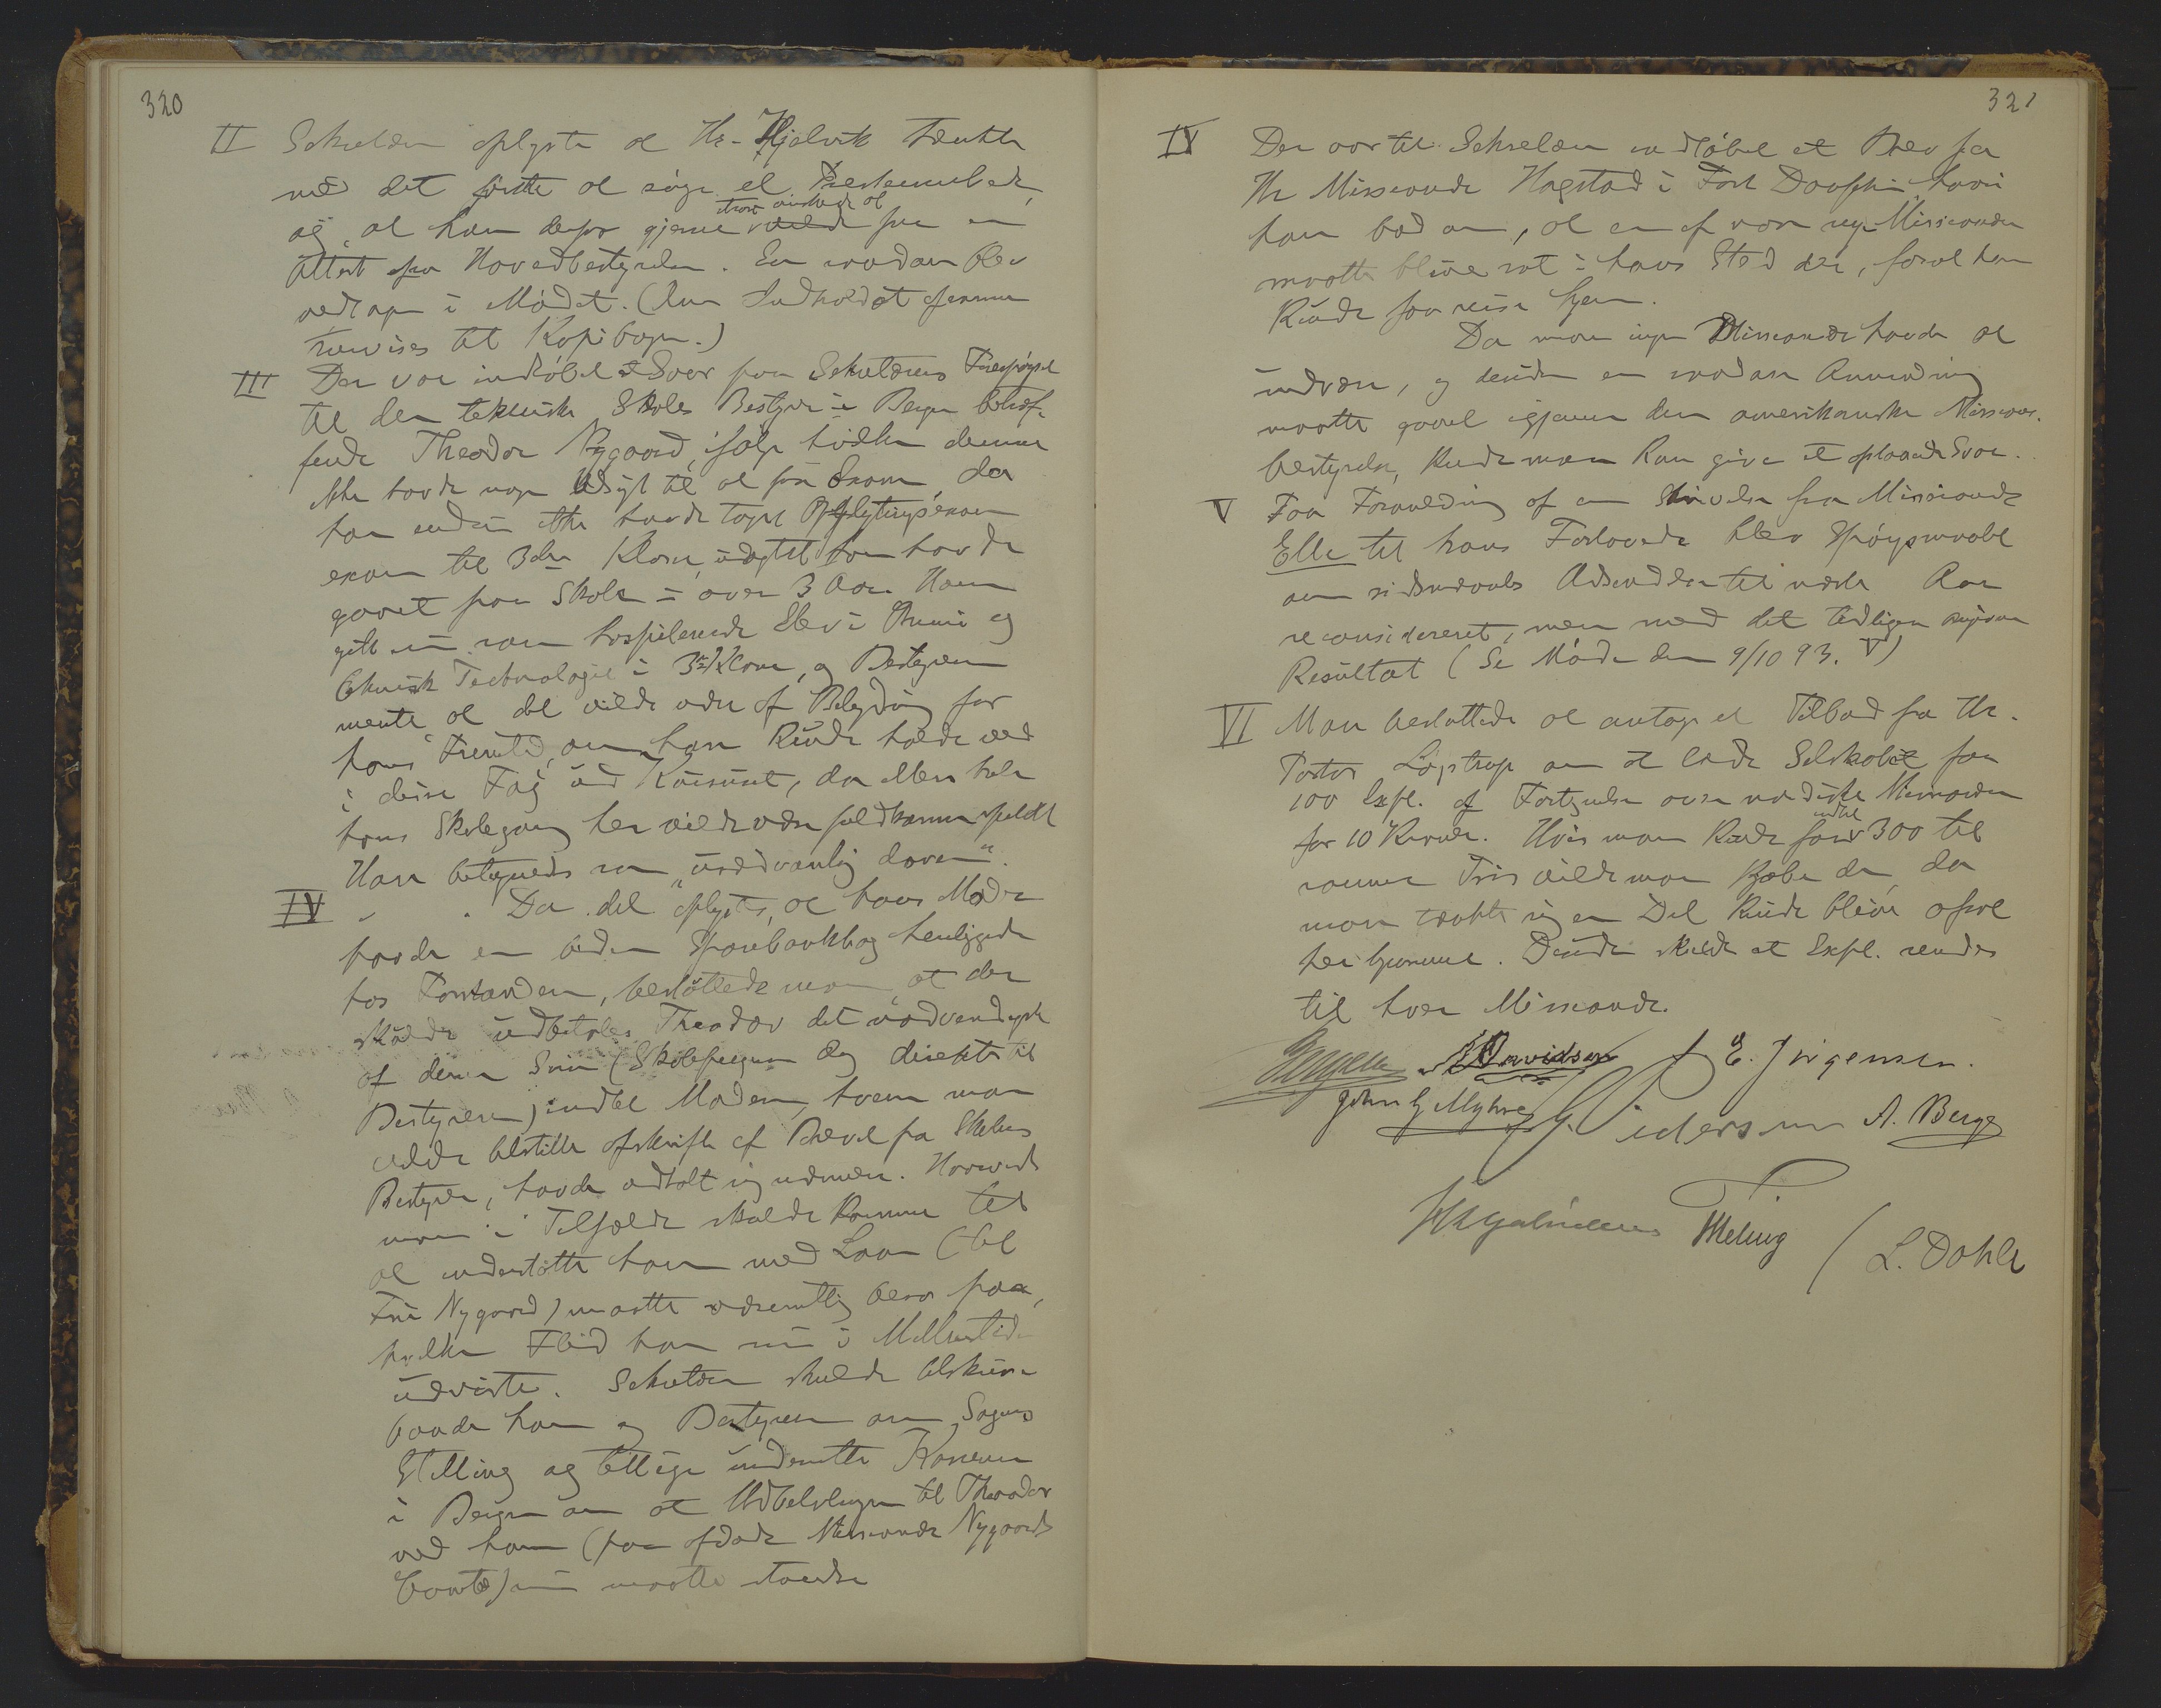 320
II Sekretæren oplyste at Hr. Hjelvik tænkte
med det første at søge et Presteembede,
og at han derfor gjerne ønskede at faa en
Attest fra Hovedbestyrelsen. En saadan blev
vedtagen i Mødet. (Om Indholdet af samme
henvises til Kopibogen.)
III Der var indløbet et Svar paa Sekretærens Forespørgsel
til den tekniske Skoles Bestyrer i Bergen betræf-
fende Theodor Nygaard, ifølge hvilken denne
ikke havde nogen Udsigt til at faa Exam, da
han endnu ikke havde taget Opflytnings
exam til 3die Klasse, uagtet han havde
gaaet paa Skole i over 3 Aar. Han
gik nu som hospiterende Elev i Kemi og
teknisk Technologie i 3die Klasse, og Bestyreren
mente at det vilde være af Betydning for
hans Fremtid, om han kunde holde ved
i disse Fag ud Kursuset, da ellers hele
hans Skolegang her vilde være fuldkommen spildt
Han betegnedes som "usædvanlig doven".
IV Da det oplystes, at hans Moder
havde en liden Sparebankbog henliggende
hos Forstanderen, besluttede man, at der
skulde udbetales Theodor det nødvendigste
af denne Sum (Skolepengene dog direkte til
Bestyreren) indtil Moderen, hvem man
vilde tilstille Afskrift af Brevet fra Skolens
Bestyrer, havde udtalt sig nærmere. Hvorvidt
man i Tilfælde skulde komme til
at understøtte ham med Laan (til
Fru Nygaard) maatte væsentlig bero paa,
hvilken Flid han nu i Mellemtiden
udviste. Sekretæren skulde tilskrive
baade ham og Bestyreren om Sagens
Stilling og tillige underrette Kassereren
i Bergen om at Udbetalingen til Theodor
ved ham (paa afdøde Missionær Nygaards
Conto) nu maatte standse
321
IV Der var til Sekretæren indløbet et Brev fra
Hr Missionær Hogstad i Fort Dauphin hvori
han bad om, at en af vore nye Missionærer
maatte blive sat i hans Sted der, forat han
kunde faa reise hjem.
Da man ingen Missionær havde at
undvære, og desuden en saadan Anmodning
maatte gaael igjennem den amerikanske Missions-
bestyrelse, kunde man kun give et afslaaende Svar.
V Paa Foranledning af en Skrivelse fra Missionær
Elle til hans Forlovede blev Spørgsmaalet
om sidstnævntes Udsendelse til næste Aar
reconsidereret, men med det tidligere
Resultat (Se Møde den 9/10 93. V)
VI Man besluttede at antage et Tilbud fra Hr.
Pastor Løgstrup om at lade Selskabet faa
100 Expl. af Fortegnelse over nordiske Missionærer
for 10 Kroner. Hvis man kunde faa indtil 300 til
samme Pris vilde man kjøbe dem, da
man tænkte sig en Del kunde blive afsat
her hjemme. Desuden skulde et Expl. sendes
til hver Missionær.
Davidsen J E. Jörgensen.
John G Myhre A. Berge
Meling L. Dahle